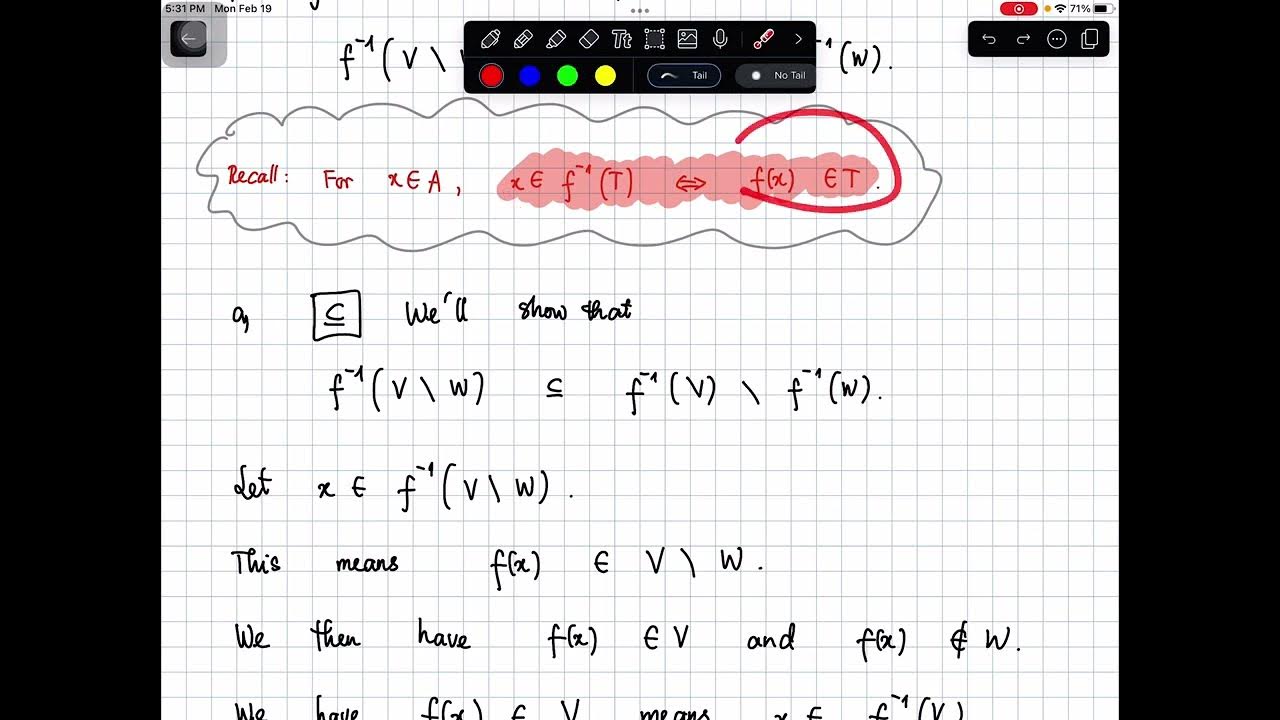 5:31 PM Mon Feb 19 71%
f⁻¹(V \ ⁻¹(W).
Tt
Tail No Tail
Recall: For x ∈ A, x ∈ f⁻¹(T) ⇔ f(x) ∈ T.
a, ⊆ We'll show that
f⁻¹(V \ W) ⊆ f⁻¹(V) \ f⁻¹(W).
Let x ∈ f⁻¹(V \ W).
This means f(x) ∈ V \ W.
We then have f(x) ∈ V and f(x) ∉ W.
We have f(x) ∈ V means x ∈ f⁻¹(V)